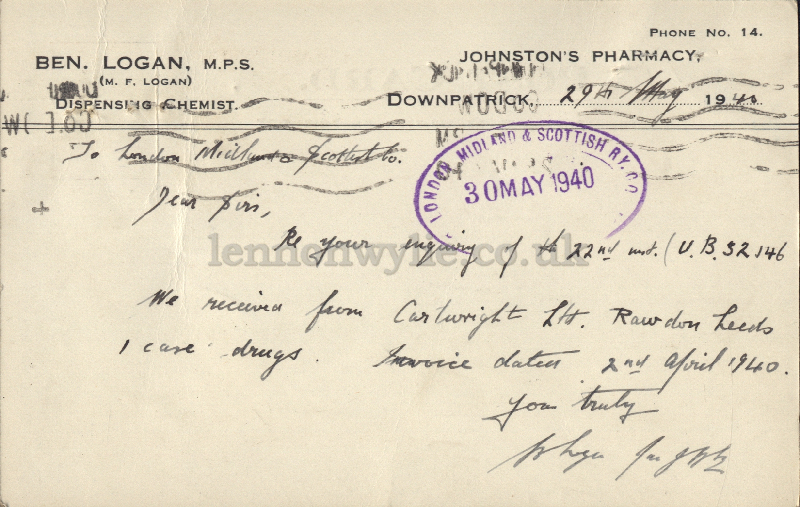 PHONE NO. 14.
BEN. LOGAN, M.P.S.
(M. F. LOGAN)
DISPENSING CHEMIST.
JOHNSTON'S PHARMACY,
DOWNPATRICK, 29th May 1940
To London Midland & Scottish Co.
LONDON, MIDLAND & SCOTTISH RY. CO.
30 MAY 1940
Dear Sirs,
Re your inquiry of the 22nd inst. (U.B. 52146
lennonwylie.co.uk
We received from Cartwright Ltd. Rawdon Leeds
1 case drugs. Invoice dated 2nd April 1940.
Yours truly